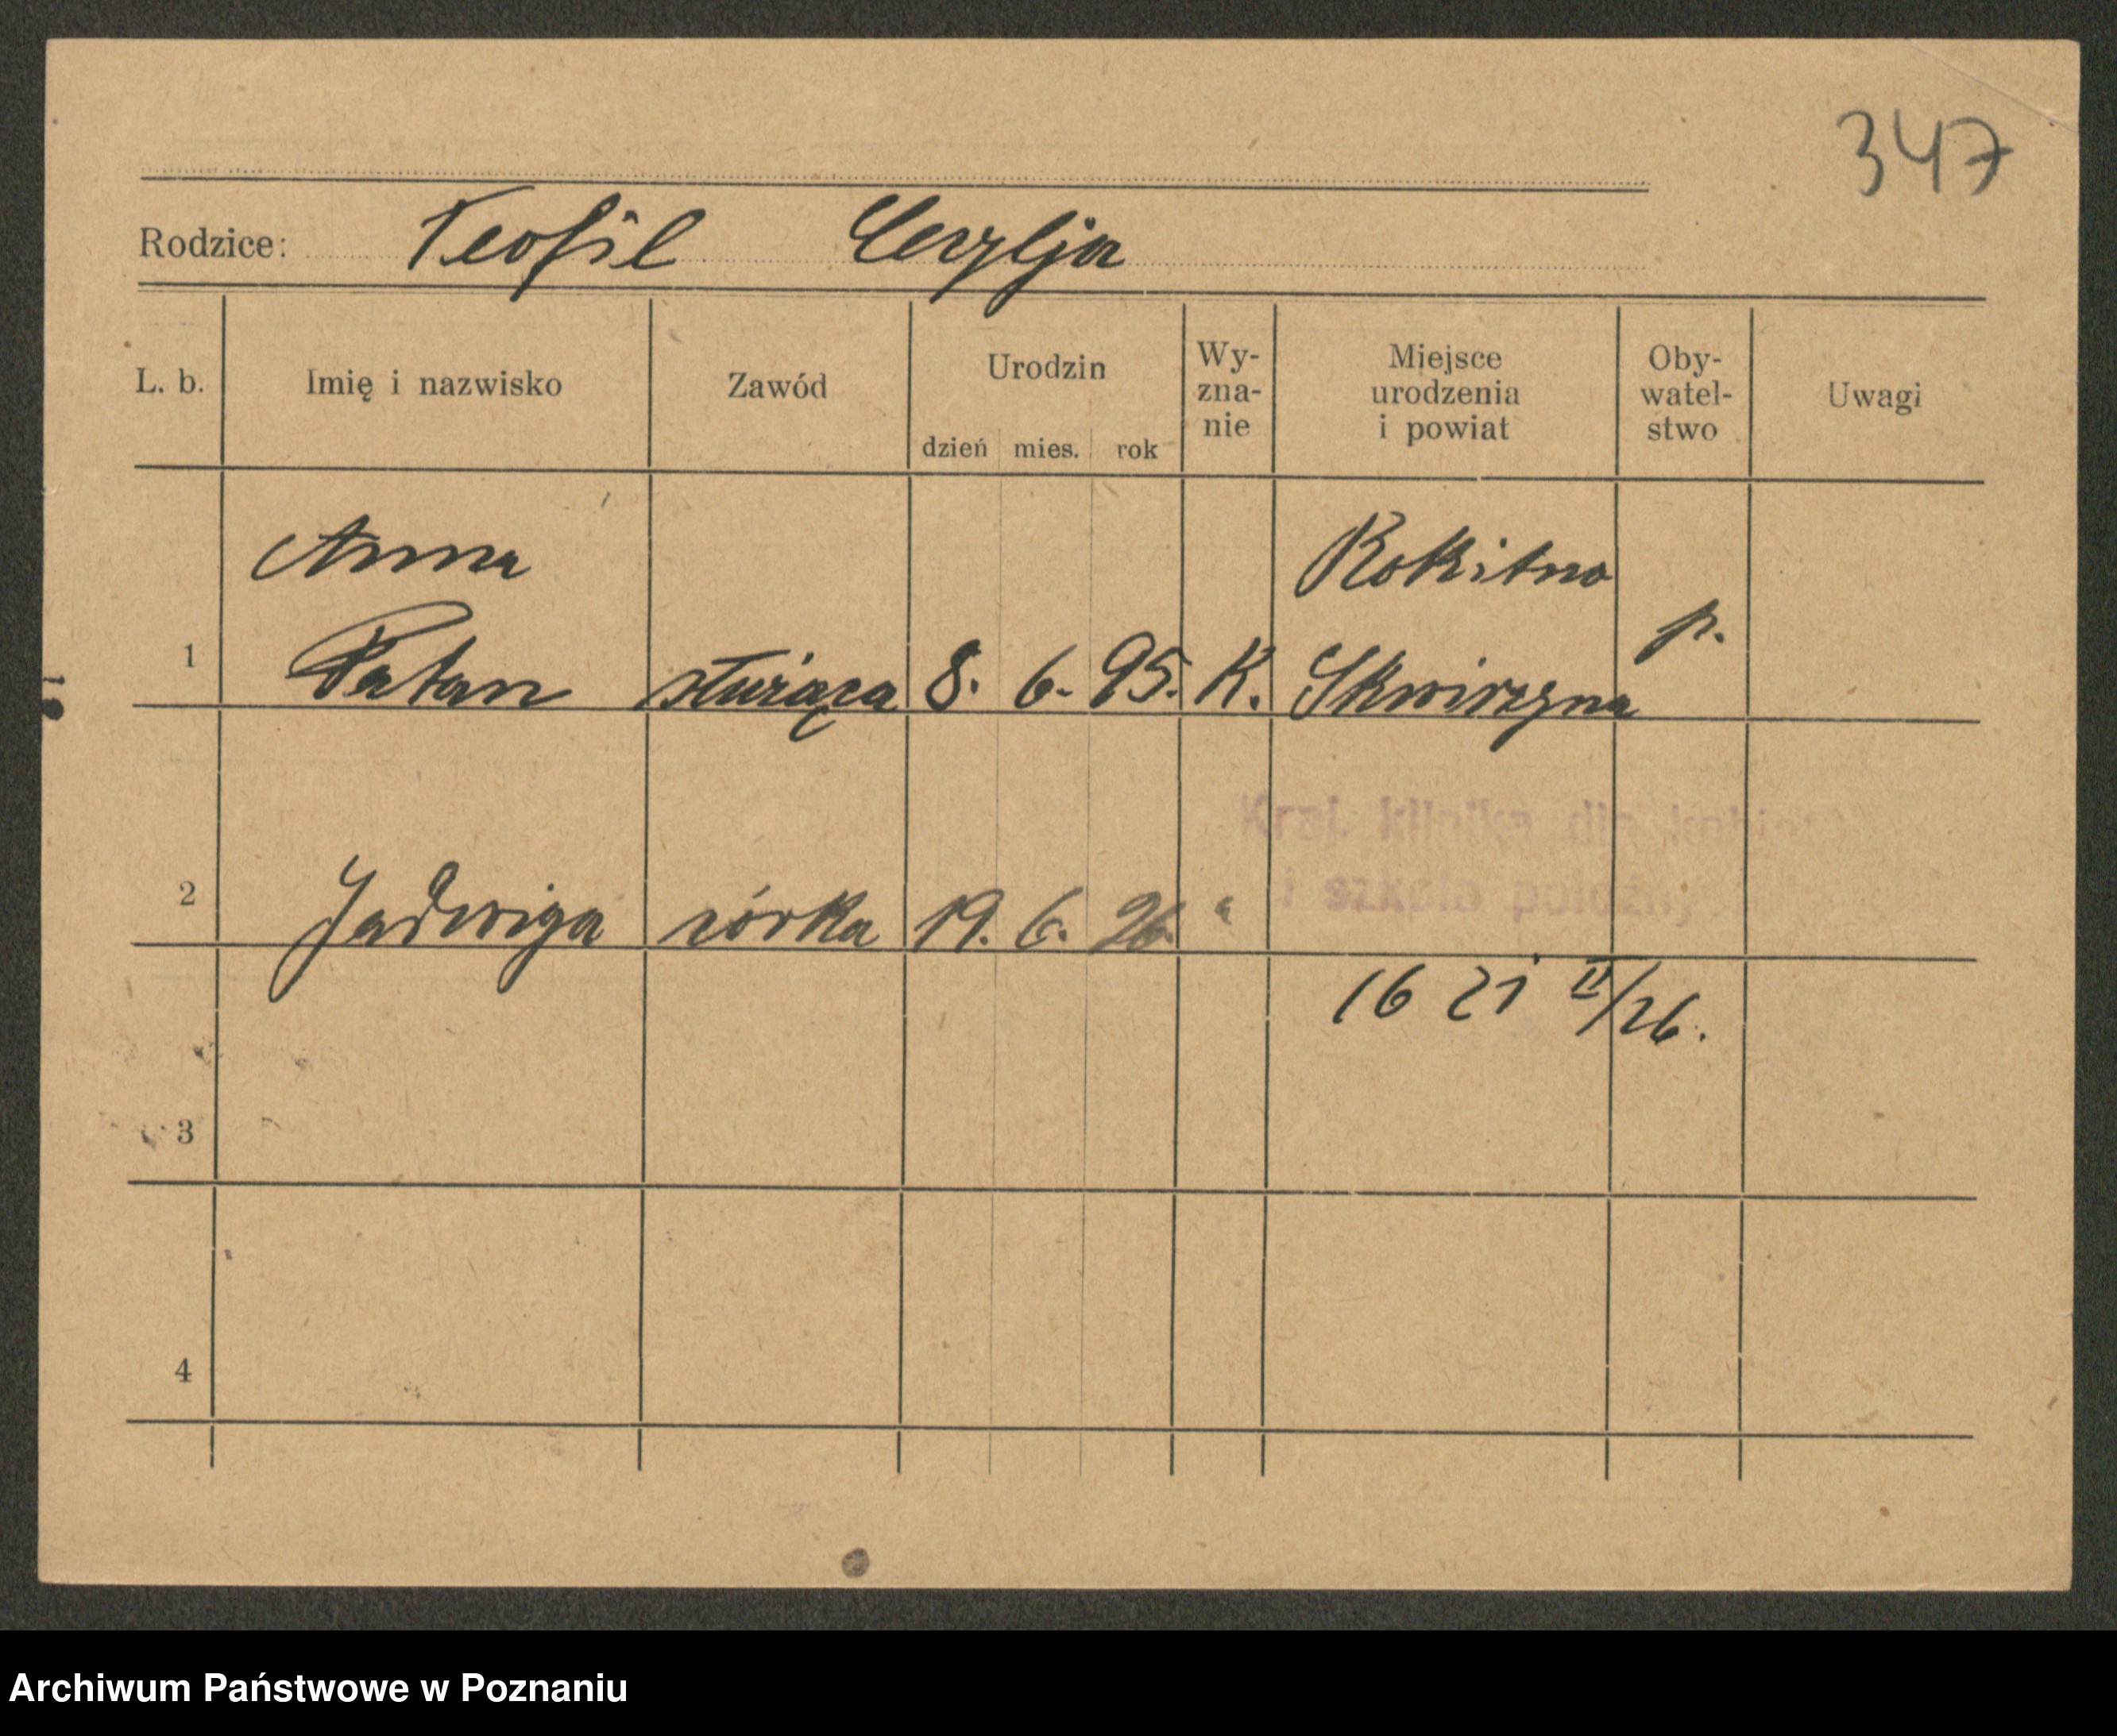 347
Rodzice: Teofil Cecylja
L. b. Imię i nazwisko Zawód Urodzin dzień mies. rok Wy-zna-nie Miejsce urodzenia i powiat Oby-watel-stwo Uwagi
Anna Rokitno
1 Patan służąca 8. 6. 95. K. Skwirzyna p.
Kraj. klinika dla kobiet
i szkoła położnych
2 Jadwiga córka 19. 6. 26. "
16 21 II/26.
3
4
Archiwum Państwowe w Poznaniu